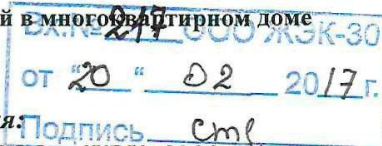 й в многоквартирном доме
Вх.№ 217 ООО ЖЭК-30
от "20" 02 2017 г.
я:
Подпись